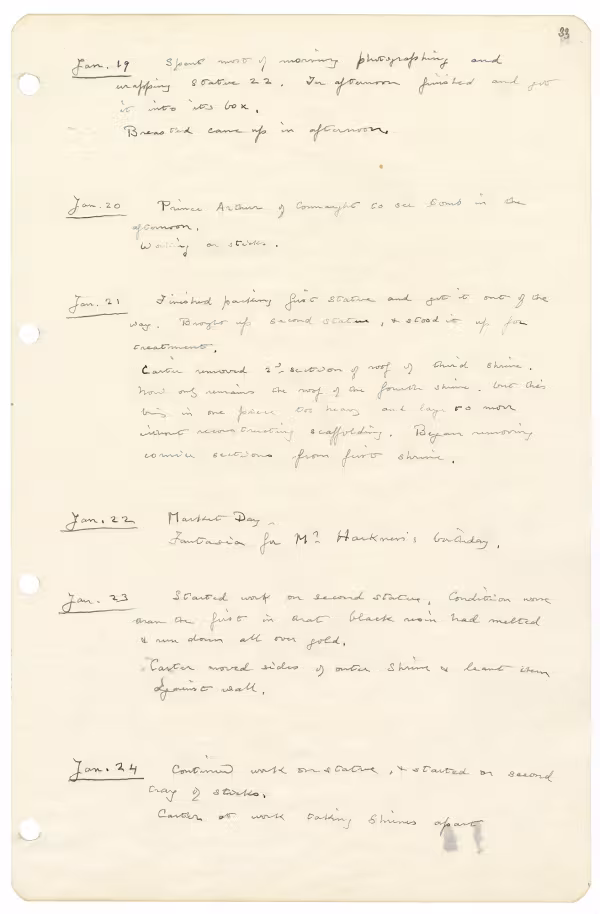 33
Jan. 19 Spent most of morning photographing and
wrapping statue 22. In afternoon finished and got
it into its box.
Breasted came up in afternoon.
Jan. 20 Prince Arthur of Connaught to see tomb in the
afternoon.
Working on sticks.
Jan. 21 Finished packing first statue and got it out of the
way. Brought up second statue, & stood it up for
treatment.
Carter removed 2nd section of roof of third shrine.
Now only remains the roof of the fourth shrine, but this
being in one piece too heavy and large to move
without reconstructing scaffolding. Began removing
cornice sections from first shrine.
Jan. 22 Market Day.
Fantasia for Mr. Harkness's birthday.
Jan. 23 Started work on second statue. Condition worse
than the first in that black resin had melted
& run down all over gold.
Carter moved sides of outer shrine & leant them
against wall.
Jan. 24 Continued work on statue, & started on second
tray of sticks.
Carter at work taking shrines apart